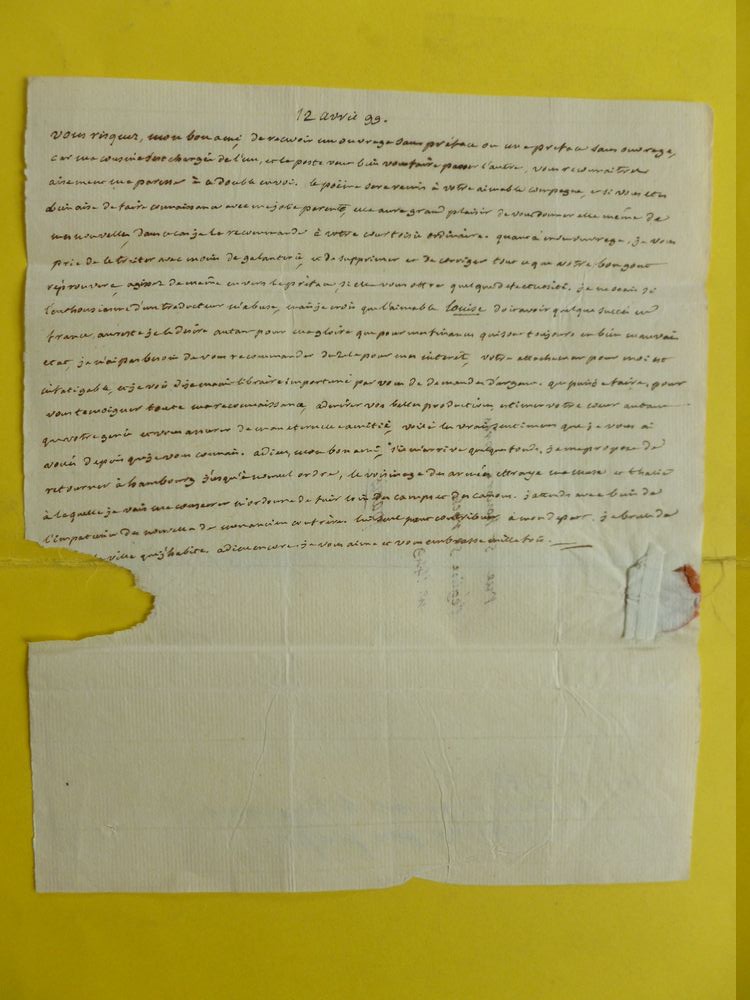 12 avril 99.
vous risquez, mon bon ami, de recevoir un ouvrage sans préface ou une préface sans ouvrage,
car ma cousine s'est chargée de l'un, et la poste veut bien vous faire passer l'autre, vous reconnaitrez
aisement ma paresse à ce double envoi. le poëme sera remis à votre aimable compagne, et si vous etes
bien aise de faire connaissance avec ma jolie parente, elle aura grand plaisir de vous donner elle même de
mes nouvelles, dans ce cas je la recommande à votre courtoisie ordinaire. quant à mon ouvrage, je vous
prie de le traiter avec moins de galanterie, et de supprimer et de corriger tout ce que votre bon gout
réprouvera, agissez de même envers la préface si elle vous offre quelque défectuosité. je ne sais si
l'enthousiasme d'un traducteur m'abuse, mais je crois que l'aimable Louise doit avoir quelque succès en
france, au reste je le désire autant pour ma gloire que pour mes finances qui sont toujours en bien mauvais
etat, je n'ai pas besoin de vous recommander du zele pour mes interets, votre attachement pour moi est
infatigable, et je vois déja mon libraire importuné par vous de demandes d'argent. que puis je faire, pour
vous temoigner toute ma reconnaissance, admirer vos belles productions, estimer votre cœur autant
que votre genie et vous assurer de mon eternelle amitié, voilà les vrais sentimens que je vous ai
voués depuis que je vous connais. adieu, mon bon ami, je me propose de
retourner à hambourg jusqu'à nouvel ordre, le voisinage des armées effraye ma muse et thalie
à laquelle je vais me consacrer m'ordonne de fuir loin des camps et des canons. j'attends avec bien de
l'impatience des nouvelles de mon ancien confrère à mon depart. je brule de
la ville que j'habite. adieu encore, je vous aime et vous embrasse mille fois.